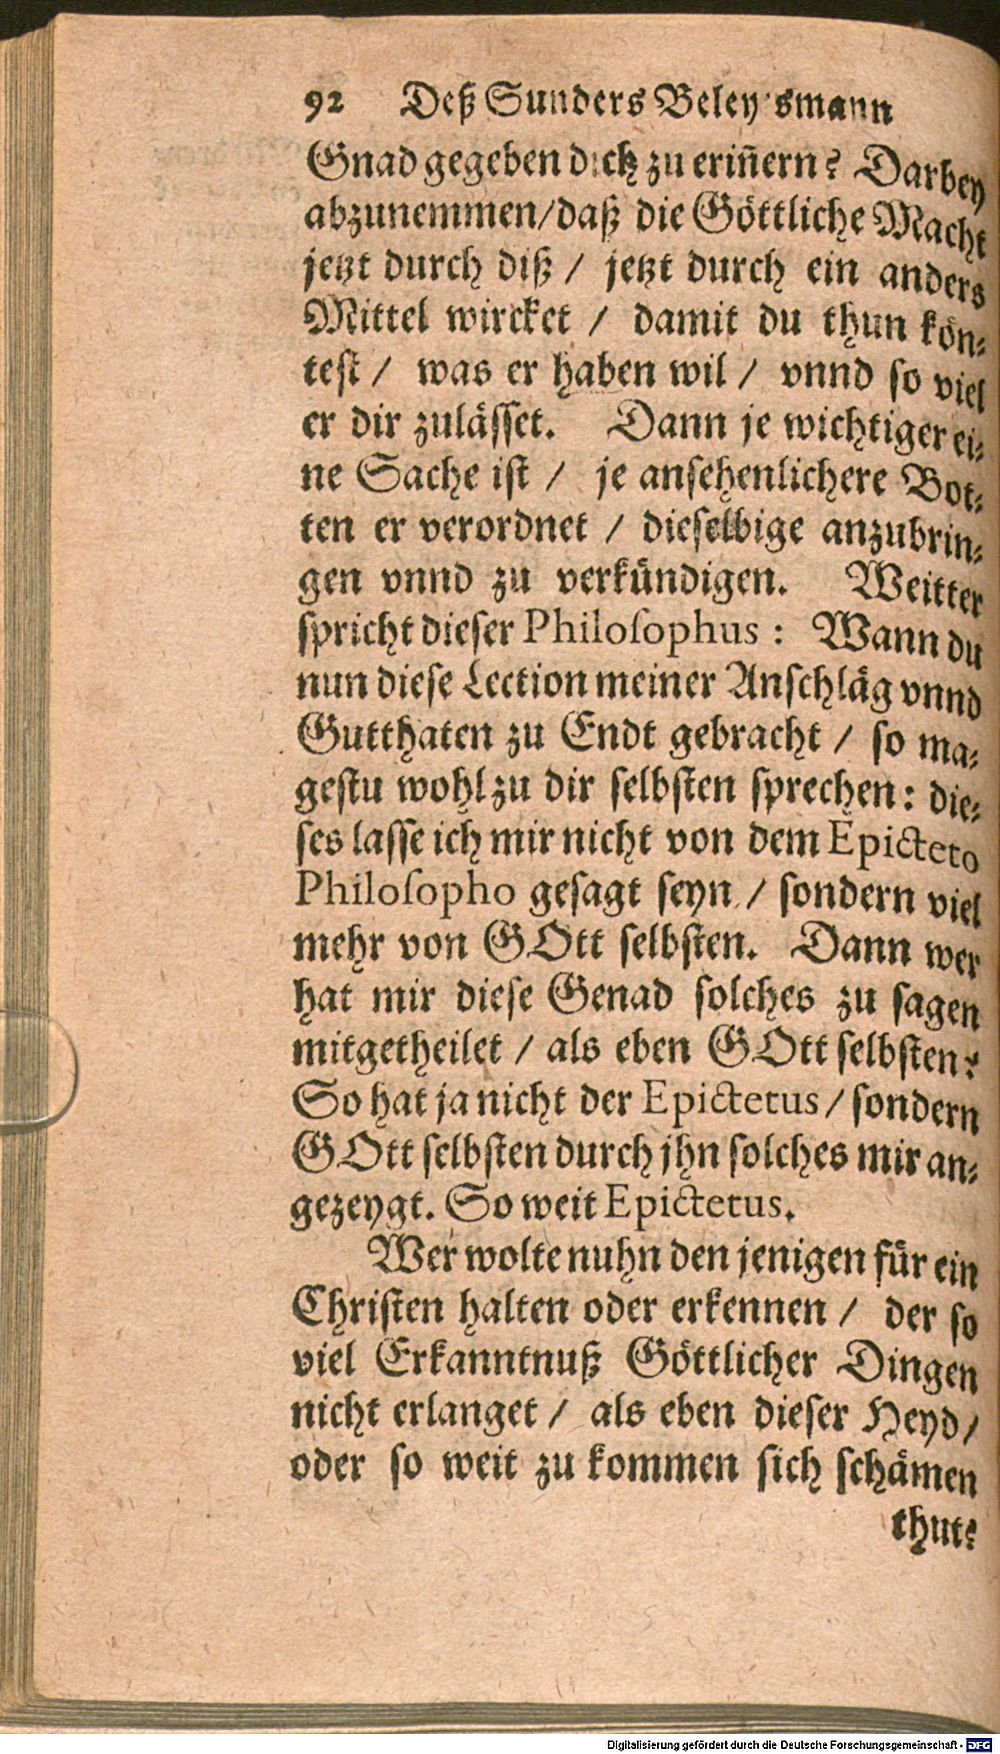 92 Deß Sunders Beleytsmann
Gnad gegeben dich zu eriñern? Darbey
abzunemmen/daß die Göttliche Macht
jetzt durch diß / jetzt durch ein anders
Mittel wircket / damit du thun kön-
test / was er haben wil / vnnd so viel
er dir zulässet. Dann je wichtiger ei-
ne Sache ist / je ansehenlichere Bot-
ten er verordnet / dieselbige anzubrin-
gen vnnd zu verkündigen. Weitter
spricht dieser Philosophus : Wann du
nun diese Lection meiner Anschläg vnnd
Gutthaten zu Endt gebracht / so ma-
gestu wohl zu dir selbsten sprechen: die-
ses lasse ich mir nicht von dem Epicteto
Philosopho gesagt seyn / sondern viel
mehr von GOtt selbsten. Dann wer
hat mir diese Genad solches zu sagen
mitgetheilet / als eben GOtt selbsten?
So hat ja nicht der Epictetus / sondern
GOtt selbsten durch jhn solches mir an-
gezeygt. So weit Epictetus.
Wer wolte nuhn den jenigen für ein
Christen halten oder erkennen / der so
viel Erkanntnuß Göttlicher Dingen
nicht erlanget / als eben dieser Heyd /
oder so weit zu kommen sich schämen
thut?
Digitalisierung gefördert durch die Deutsche Forschungsgemeinschaft - DFG